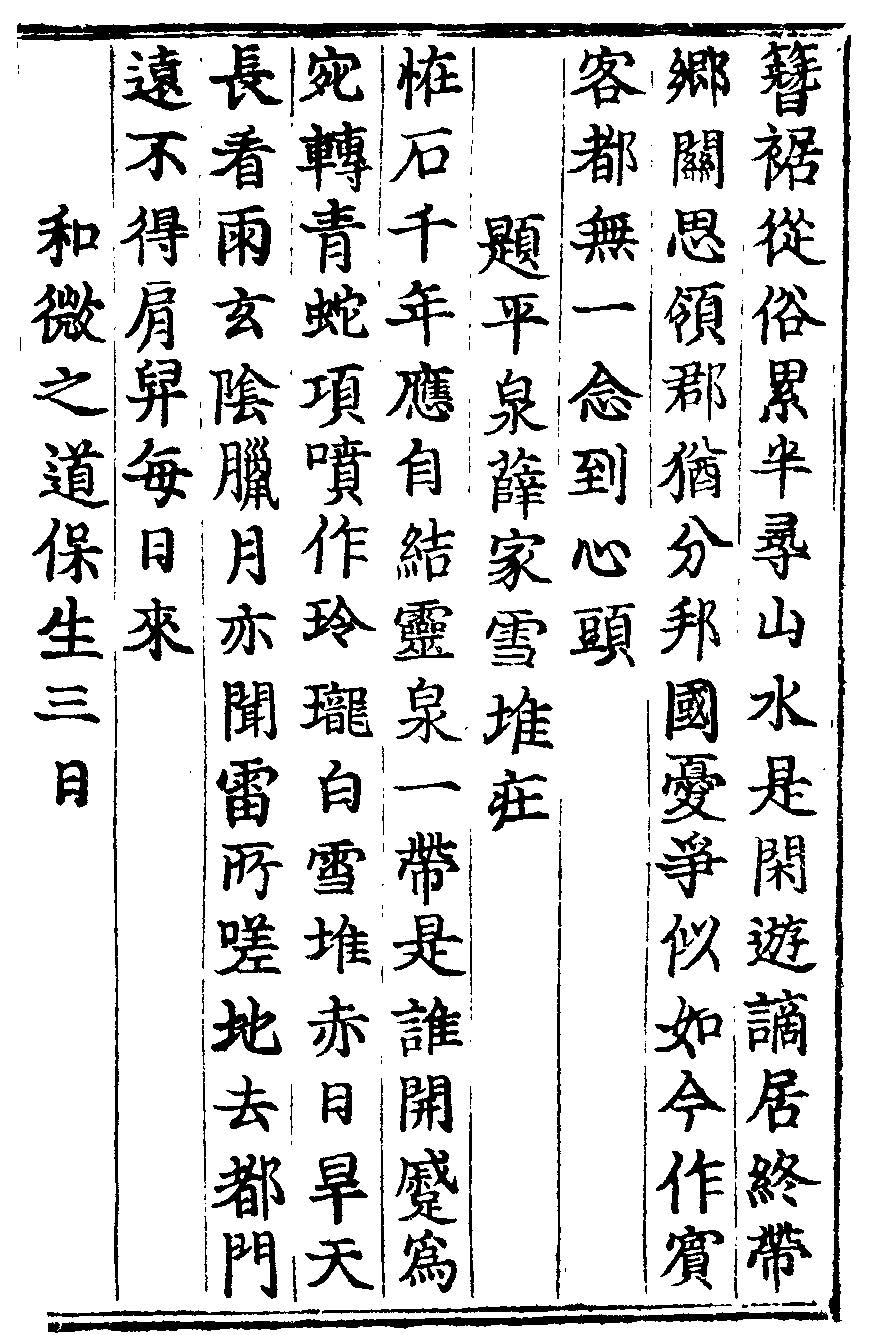 簪裾從俗累半尋山水是閑遊謫居終帶
鄉關思領郡猶分邦國憂爭似如今作賓
客都無一念到心頭
題平泉薛家雪堆莊
恠石千年應自結靈泉一帶是誰開蹙爲
宛轉青蛇項噴作玲瓏白雪堆赤日旱天
長看雨玄陰臘月亦聞雷所嗟地去都門
遠不得肩舁每日來
和微之道保生三日